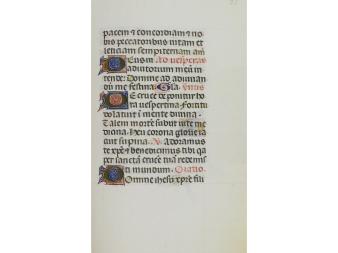 pacem et concordiam et no
bis peccatoribus uitam et
leticiam sempiternam am̄.
Deus in Ad vesperas
adiutorium meū in
tende: Domine ad adiuuan
dū me festina. Gl̄a.
De cruce deponitur ho
ra vespertina. Fortitu
do latuit in mente diuina.
Talem mortē subiit vite me
dicina. Heu corona glorie ia
cuit supina. V. Adoramus
te xp̄e et benedicimus tibi q̄a
per sanctā crucē tuā redemis
ti mundum. Oratio.
Domine ihesu xp̄e fili